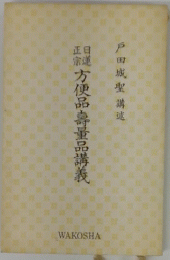 戸田城聖講述
日蓮
正宗
方便品寿量品講義
WAKOSHA